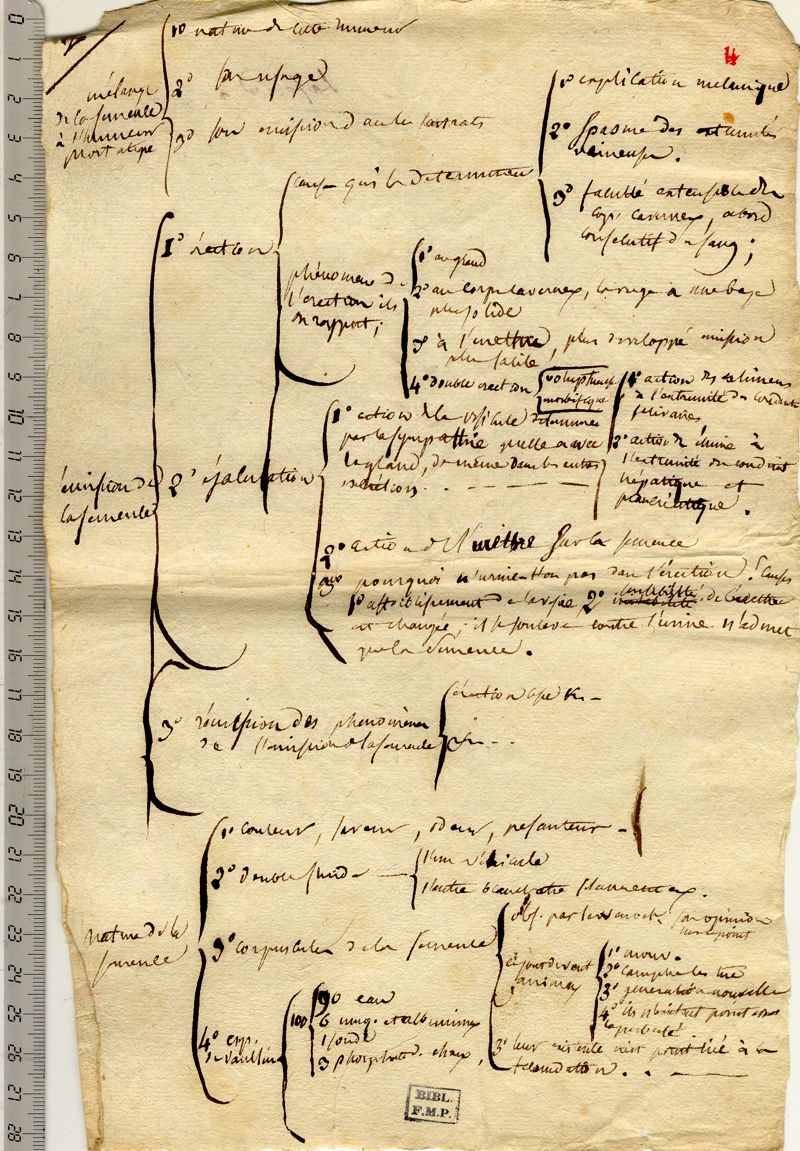 4
mélange
de la semence
à l'humeur
prostatique
1° nature de cette humeur
2° son usage
3° son émission dans les castrats
émission de
la semence
1° érection
cause qui la déterminent
1° explication mécanique
2° spasme des extrémités
veineuses.
3° faculté extensible des
corps caverneux, abord
consécutif du sang;
phénomènes de
l'érection ils
ont rapport;
1° au gland
2° au corps caverneux, la verge a une base
plus solide
3° à l'urèthre, plus développé émission
plus facile,
4° double érection
voluptueuse
morbifique
2° éjaculation
1° action de la vésicule
par la sympathie quelle a avec
le gland, de même dans les autres
excrétions.
1° action des alimens
à l'extrémité des conduits
salivaires
2° action du chime à
l'extrémité du conduit
hépatique et
pancréatique.
2° action de l'urèthre sur la semence
3° pourquoi n'urine-t-on pas dans l'érection? causes
1° affoiblissement de la vessie 2° sensibilité de l'urèthre
est changée, il se soulève contre l'urine n'admet
que la semence.
3° rémission des phénomènes
de l'émission de la semence
érection
nature de la
semence
1° couleur, saveur, odeur, pesanteur
2° double fluide
l'un véhicule
l'autre blanchatre
3° corpuscules de la semence
obs. par Leuwenoek. son opinion
sur ce point
1° mouv.
2° camphre les tue
3° génération nouvelle
4° ils n'existent point avant
la puberté
3° leur existence n'est point liée à la
fécondation.
4° exp.
de Vauquelin
100
90 eau
6 muq. et albumineux
1 soude
3 phosphate d. chaux,
BIBL.
F.M.P.